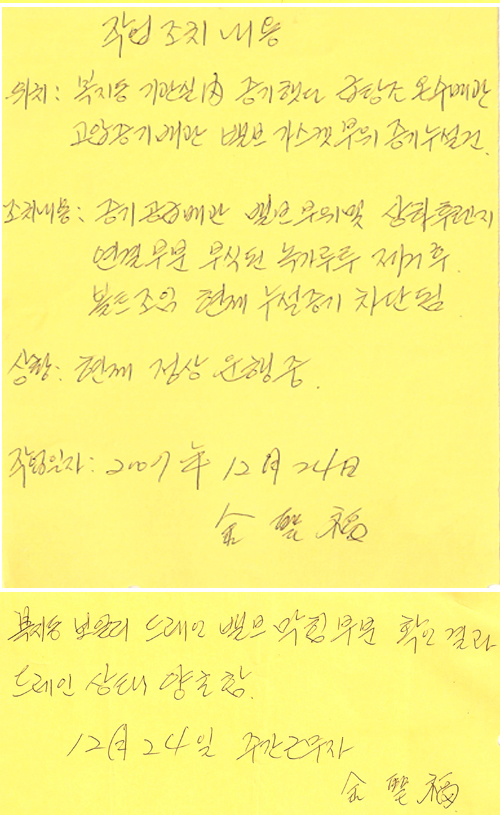 작업조치내용
위치: 복지동 기관실內 증기헷다 온수배관
고압증기배관 밸브 가스켓부위 증기누설건.
조치내용: 증기공급배관 밸브부위및 상하후렌지
연결부분 부식된 녹가루 제거후.
볼트조임 현재 누설증기 차단됨
상황: 현재 정상 운행중.
작업일자: 2007年 12月 24日
金聖福
복지동 보일러 드레인 밸브 막힘부분 확인결과
드레인 상태 양호함.
12月 24일 주간근무자
金聖福